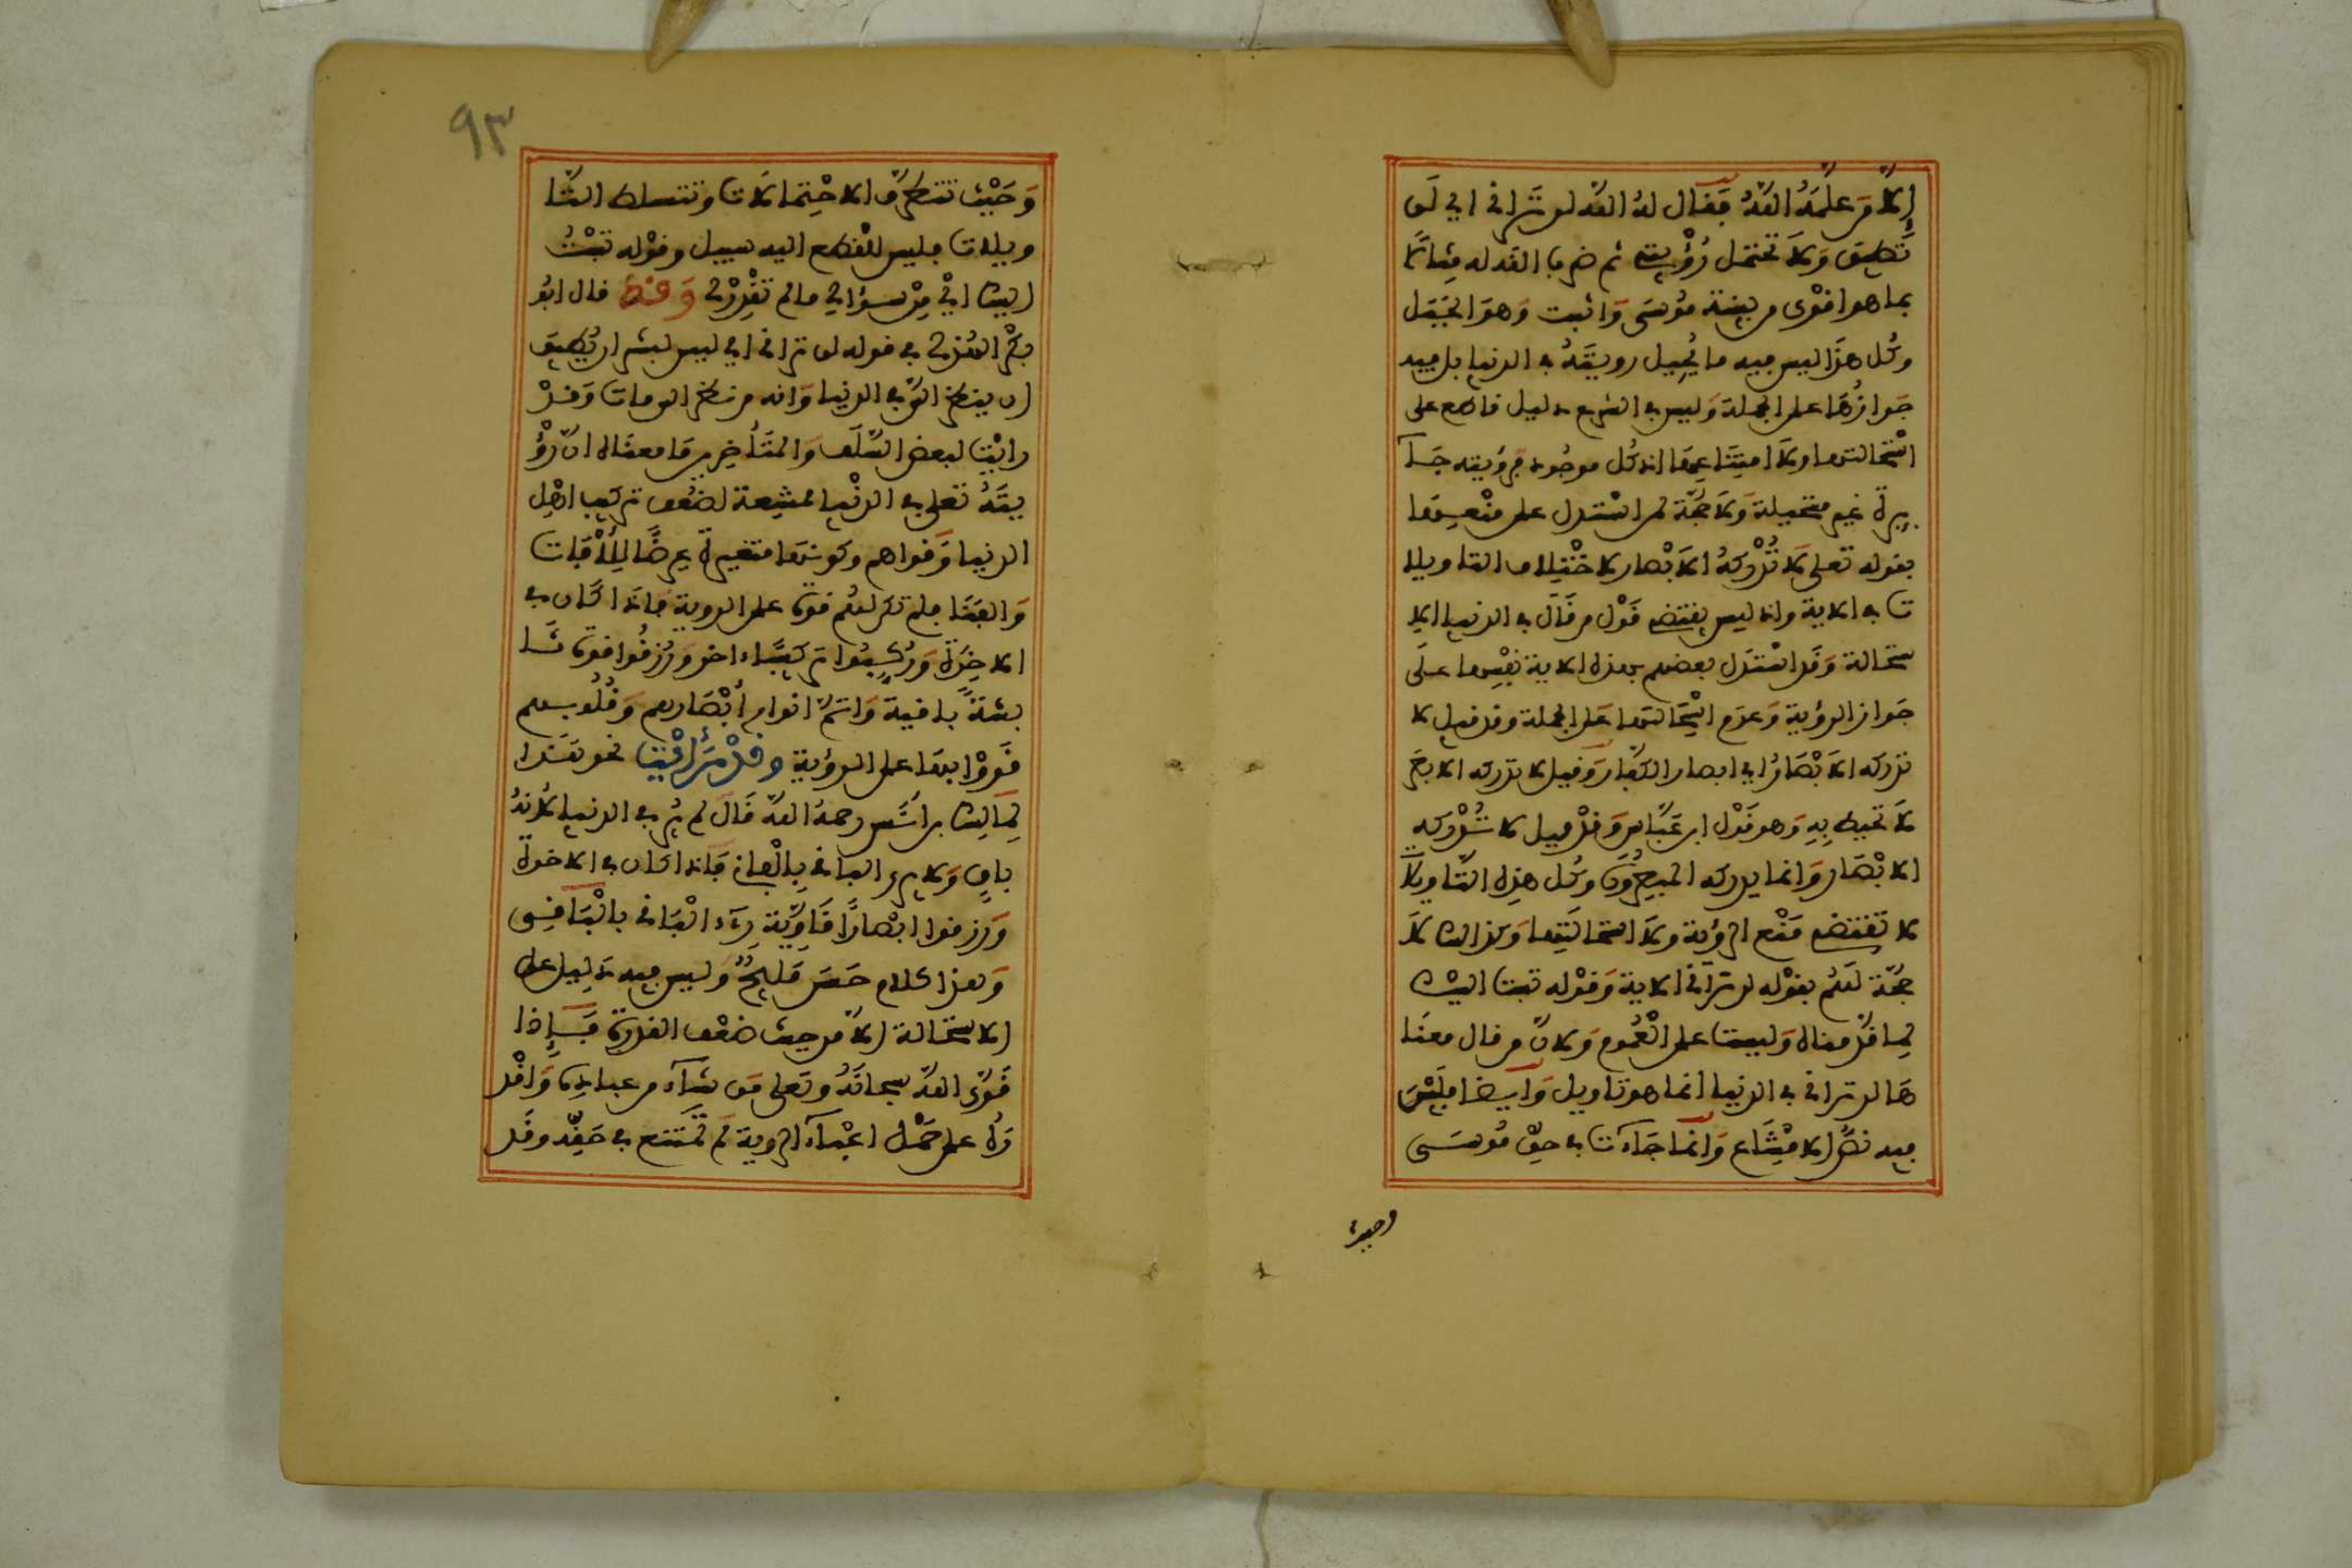 إلا من علمه الله فقال له الله لن تراني اي لن
تطيق ولا تحتمل رؤيتي ثم ضرب الله له مثالا
بما هو اقوى من بنية موسى واثبت وهو الجبل
وكل هذا ليس فيه ما يحيل رويته في الدنيا بل فيه
جوازها على الجملة وليس في الشرع دليل قاطع على
استحالتها ولا امتناعها اذ كل موجود فرؤيته جا
يزة غير مستحيلة ولا حجة لمن استدل على منعها
بقوله تعلى لا تدركه الابصار لاختلاف التاويلا
ت في الاية واذ ليس يقتضي قول من قال في الدنيا الا
ستحالة وقد استدل بعضهم بهذه الاية نفسها على
جواز الرؤية وعدم استحالتها على الجملة وقد قيل لا
تدركه الابصار اي ابصار الكفار وقيل لا تدركه الابصر
لا تحيط به وهو قول ابن عباس وقد قيل لا تدركه
الابصار وانما يدركه المبصرون وكل هذه التاويلات
لا تقتضي منع الرؤية ولا استحالتها وكذالك لا
حجة لهم بقوله لن تراني الاية وقوله تبت اليك
لما قدمناه وليست على العموم ولان من قال معنا
ها لن تراني في الدنيا انما هو تاويل وايضا فليس
فيه نص الامتناع وانما جاءت في حق موسى
وحيث
٩٣
وحيث تتطرق الاحتمالات وتتسلط التا
ويلات فليس للقطع اليه سبيل وقوله تبت
اليك اي من سؤالي ما لم تقدره لي وقد قال ابو
بكر الهذلي في قوله لن تراني اي ليس لبشر ان يطيق
ان ينظر الي في الدنيا وانه من نظر الي مات وقد
رايت لبعض السلف والمتأخرين ما معناه ان رؤ
يته تعلى في الدنيا ممتنعة لضعف تركيب اهل
الدنيا وقواهم وكونها متغيرة عرضا للأفات
والفنا فلم تكن لهم قوة على الروية فاذا كان في
الاخرة وركبوا تركيبا ءاخر ورزقوا قوى ثا
بتة باقية واتم انوار أبصارهم وقلوبهم
قووا بها على الرؤية وقد رأيت نحو هذا
لمالك بن أنس رحمه الله قال لم ير في الدنيا لأنه
باق ولا يرى الباقي بالفاني فاذا كان في الاخرة
ورزقوا ابصارا قاوية رءا الباقي بالباقي
وهذا كلام حسن مليح وليس فيه دليل على
الاستحالة إلا من حيث ضعف القدرة فإذا
قوى الله سبحانه وتعلى من شاء من عباده واقد
ره على حمل اعباء الروية لم تمتنع في حقه وقد